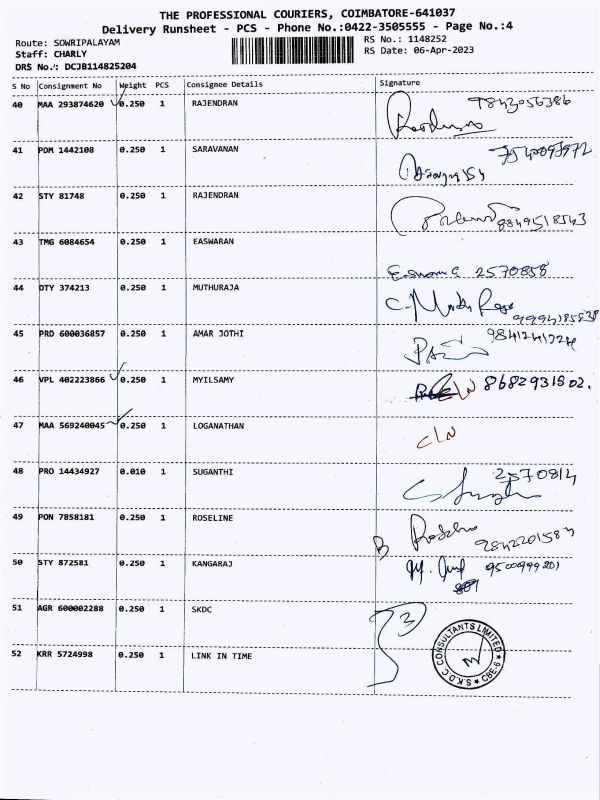 THE PROFESSIONAL COURIERS, COIMBATORE-641037
Delivery Runsheet - PCS - Phone No.:0422-3505555 - Page No.:4
Route: SOWRIPALAYAM
RS No.: 1148252
Staff: CHARLY
RS Date: 06-Apr-2023
DRS No.: DCJB114825204
S No Consignment No Weight PCS Consignee Details Signature
40 MAA 293874620 0.250 1 RAJENDRAN
41 PDM 1442108 0.250 1 SARAVANAN
42 STY 81748 0.250 1 RAJENDRAN 9849518543
43 TMG 6084654 0.250 1 EASWARAN 2570858
44 DTY 374213 0.250 1 MUTHURAJA
45 PRD 600036857 0.250 1 AMAR JOTHI
46 VPL 402223866 0.250 1 MYILSAMY 8682931802.
47 MAA 569240045 0.250 1 LOGANATHAN CLN
48 PRO 14434927 0.010 1 SUGANTHI 2570814
49 PON 7858181 0.250 1 ROSELINE
50 STY 872581 0.250 1 KANGARAJ
51 AGR 600002288 0.250 1 SKDC
52 KRR 5724998 0.250 1 LINK IN TIME
S.K.D.C. CONSULTANTS LIMITED
CBE-6